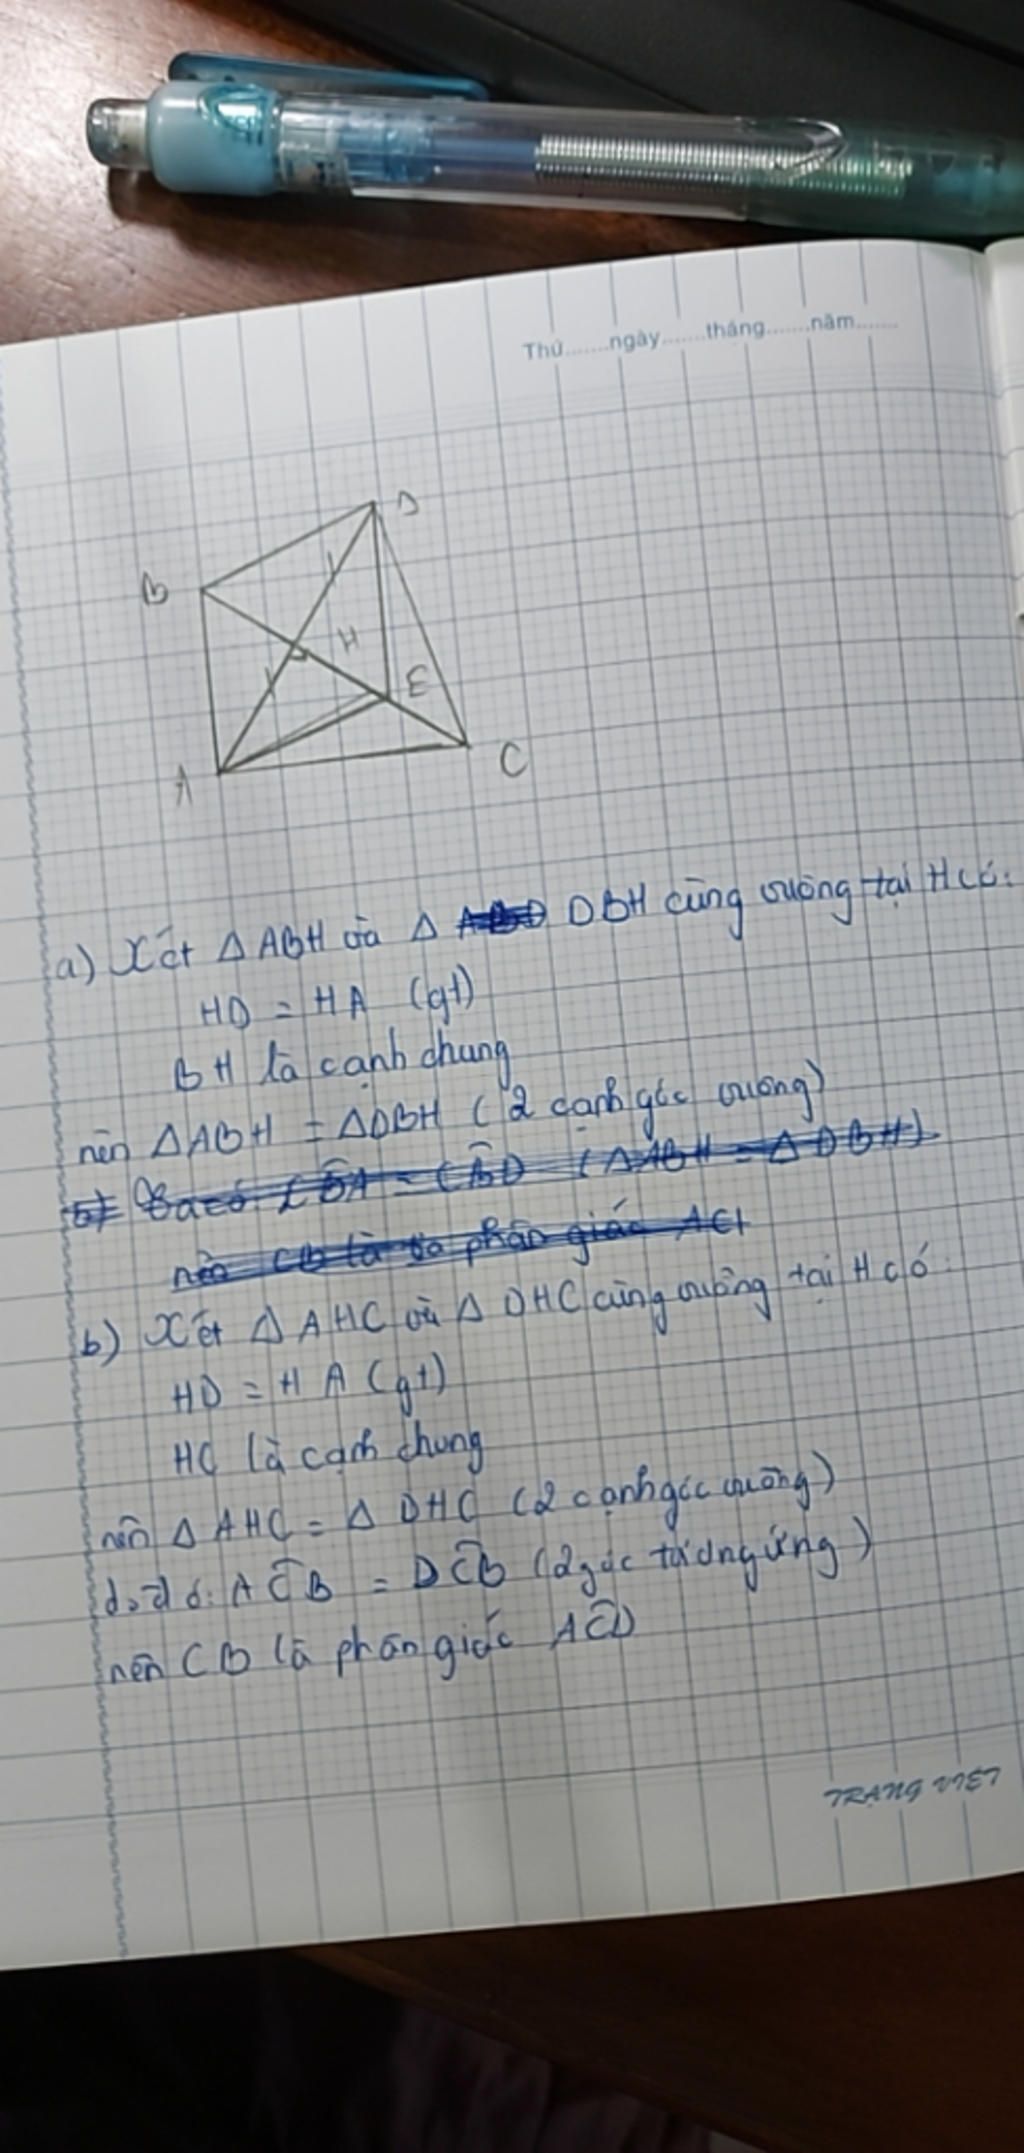 Thứ.......ngày.......tháng.......năm.......
D
B
H
E
A
C
a) Xét Δ ABH và Δ DBH cùng vuông tại H có:
HD = HA (gt)
BH là cạnh chung
nên ΔABH = ΔDBH (2 cạnh góc vuông)
b) Ta có: CBA = CBD (ΔABH = ΔDBH)
nên CB là phân giác
b) Xét Δ AHC và Δ DHC cùng vuông tại H có:
HD = HA (gt)
HC là cạnh chung
nên Δ AHC = Δ DHC (2 cạnh góc vuông)
do đó: ACB = DCB (2 góc tương ứng)
nên CB là phân giác ACD
TRANG VIET